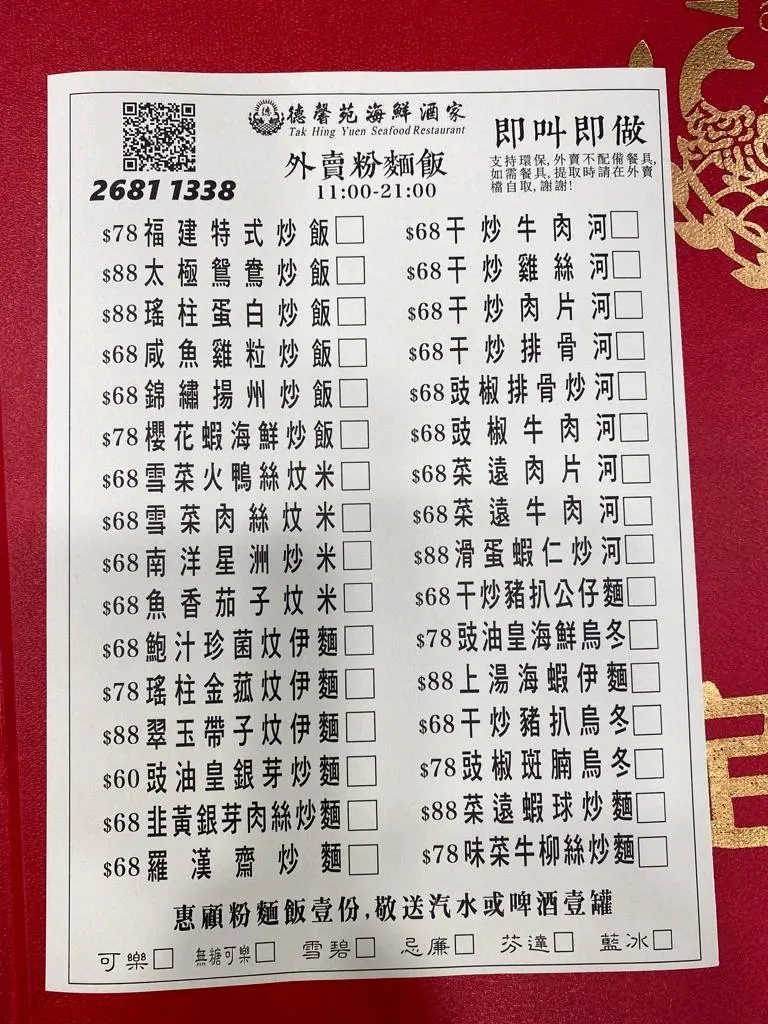 德馨苑海鮮酒家
Tak Hing Yuen Seafood Restaurant
外賣粉麵飯
11:00-21:00
2681 1338
即叫即做
支持環保,外賣不配備餐具,
如需餐具,提取時請在外賣
檔自取,謝謝!
$78福建特式炒飯
$88太極鴛鴦炒飯
$88瑤柱蛋白炒飯
$68咸魚雞粒炒飯
$68錦繡揚州炒飯
$78櫻花蝦海鮮炒飯
$68雪菜火鴨絲炆米
$68雪菜肉絲炆米
$68南洋星洲炒米
$68魚香茄子炆米
$68鮑汁珍菌炆伊麵
$78瑤柱金菰炆伊麵
$88翠玉帶子炆伊麵
$60豉油皇銀芽炒麵
$68韭黃銀芽肉絲炒麵
$68羅漢齋炒麵
$68干炒牛肉河
$68干炒雞絲河
$68干炒肉片河
$68干炒排骨河
$68豉椒排骨炒河
$68豉椒牛肉河
$68菜遠肉片河
$68菜遠牛肉河
$88滑蛋蝦仁炒河
$68干炒豬扒公仔麵
$78豉油皇海鮮烏冬
$88上湯海蝦伊麵
$68干炒豬扒烏冬
$78豉椒斑腩烏冬
$88菜遠蝦球炒麵
$78味菜牛柳絲炒麵
惠顧粉麵飯壹份,敬送汽水或啤酒壹罐
可樂 無糖可樂 雪碧 忌廉 芬達 藍冰